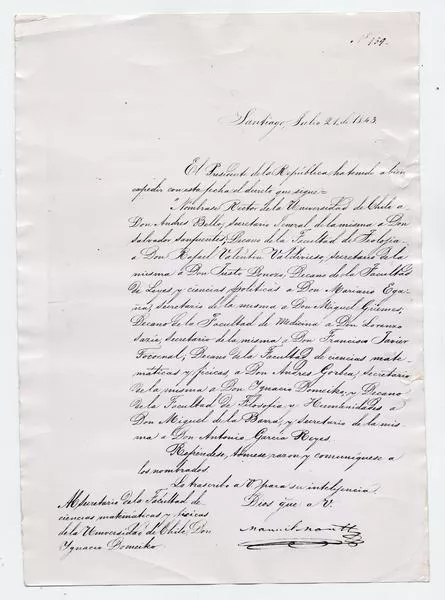 Nº 159.
Santiago, Julio 21 de 1843.
El Presidente de la República ha tenido a bien
espedir con esta fecha el decreto que sigue=
"Nómbrase Rector de la Universidad de Chile a
Don Andres Bello; Secretario Jeneral de la misma a Don
Salvador Sanfuentes; Decano de la Facultad de Teolojia
a Don Rafael Valentin Valdivieso, secretario de la
misma a Don Justo Donoso; Decano de la Facultad
de Leyes y ciencias politicas a Don Mariano Ega
ña; secretario de la misma a Don Miguel Güemes;
Decano de la Facultad de Medicina a Don Lorenzo
Sazie, Secretario de la misma a Don Francisco Javier
Tocornal; Decano de la Facultad de ciencias mate-
máticas y fisicas a Don Andres Gorbea, Secretario
de la misma a Don Ignacio Domeiko; y Decano
de la Facultad de Filosofia y Humanidades a
Don Miguel de la Barra, y Secretario de la mis
ma a Don Antonio Garcia Reyes.
Refréndese, tómese razon y comuníquese a
los nombrados.
Lo trascribo a V. para su intelijencia.
Dios gue a V.
Manuel Montt
Al Secretario de la Facultad de
ciencias matemáticas y fisicas
de la Universidad de Chile Don
Ygnacio Domeiko